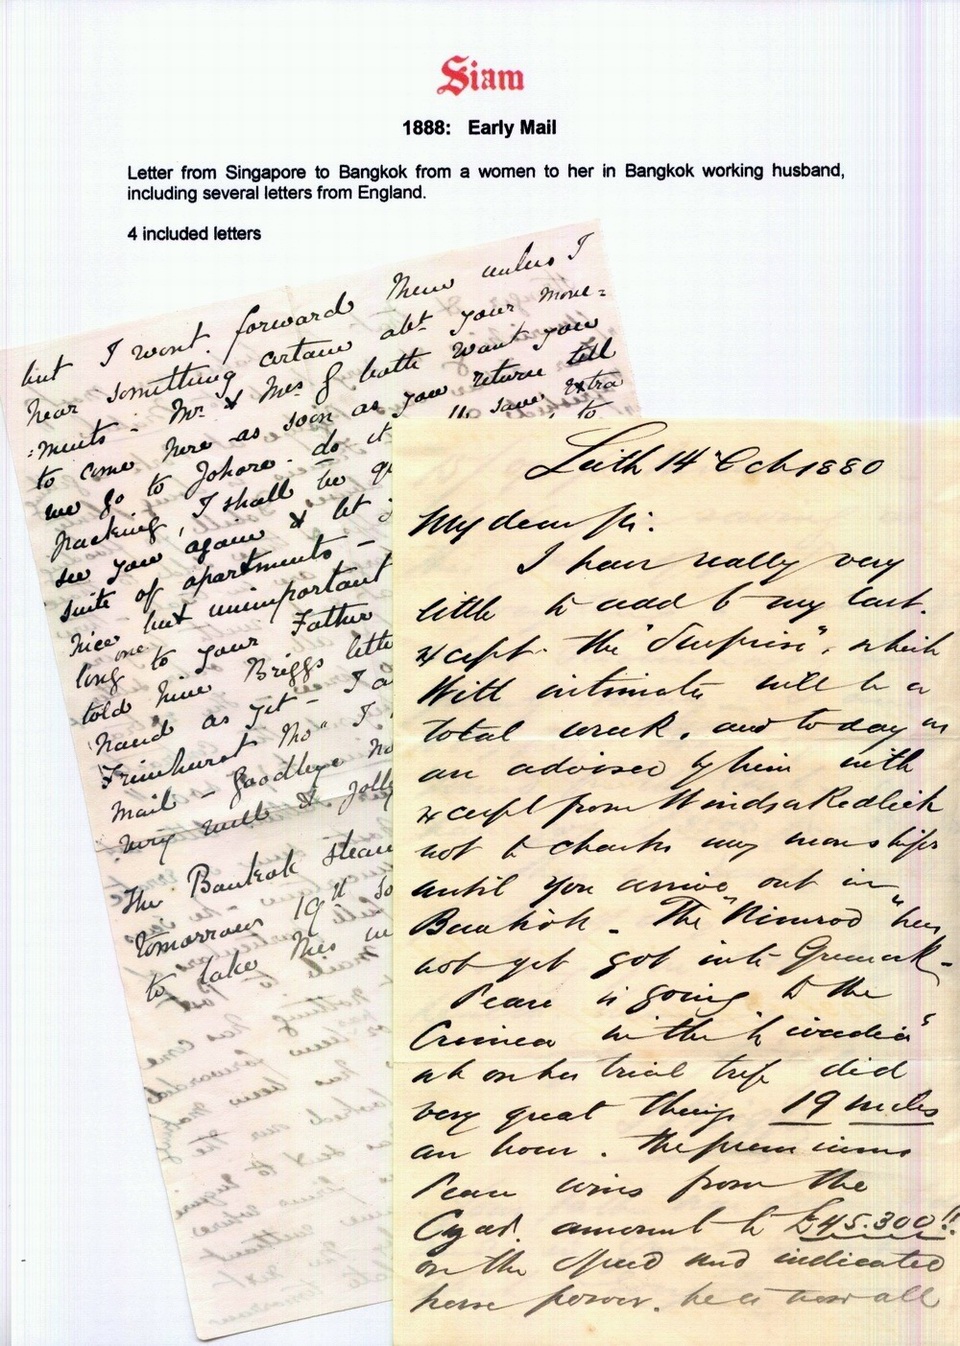 Siam
1888: Early Mail
Letter from Singapore to Bangkok from a women to her in Bangkok working husband,
including several letters from England.
4 included letters
but I wont forward them unless I
hear something certain abt your move=
=ments - Mr. & Mrs G both want you
to come here as soon as you return till
we go to Johore. do it save extra
packing, I shall be to
see you again & let
suite of apartments -
nice but unimportant
long one to your Father
told him Briggs
hand as yet - I
Frimhurst tho" I
mail - Goodbye
very well & jolly
The Bankok
tomorrow 19th
to take this
Leith 14" Oct 1880
My dear Sir.
I have really very
little to add to my last.
except the "Surprise", which
Will intimates will be a
total wreck, and today
an advised by him with
except from Windsor Redlick
not to charter any more ships
until you arrive out in
Bankok - The "Nimrod" has
not yet got into Greenock -
Pearce is going to the
Crimea in the "Livadia"
on her trial trip did
very great things 19 miles
an hour. The premiums
Pearce wins from the
Czar. amount to £45.300!!
on the speed and indicated
horse power. he is now all